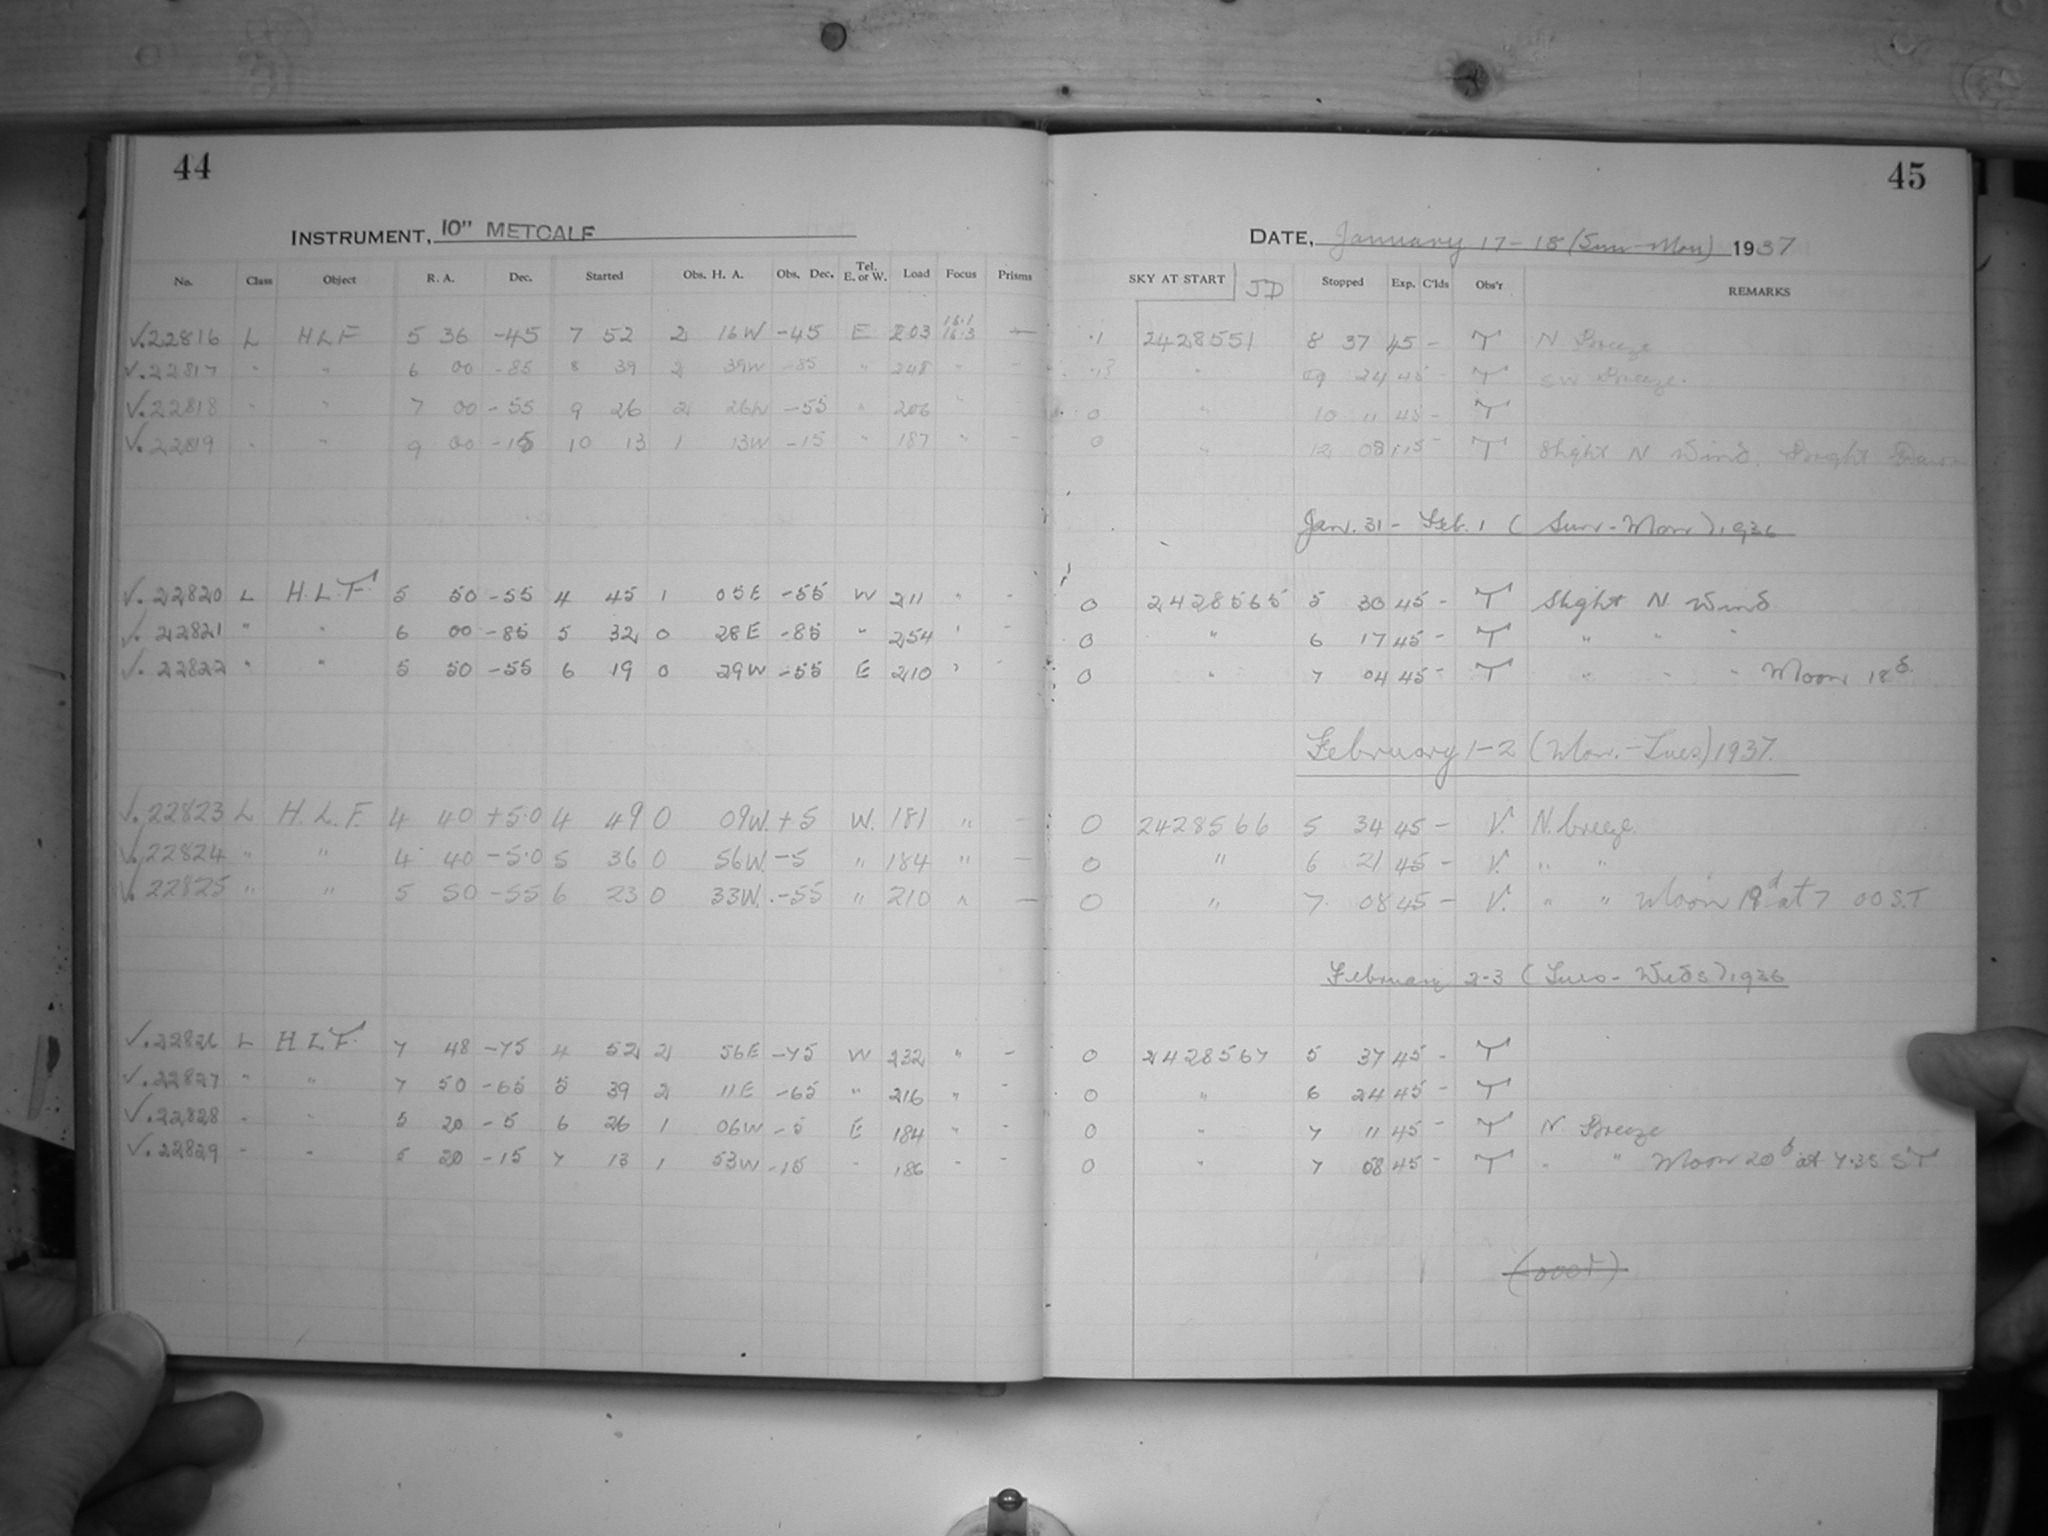 44
INSTRUMENT, 10" METCALF
No. Class Object R. A. Dec. Started Obs. H. A. Obs. Dec. Tel. E. or W. Load Focus Prisms
√.22816 L HLF 5 36 -45 7 52 2 16W -45 E 203 16.1 16.3 —
√.22817 " " 6 00 -85 8 39 2 39W -85 " 248 " -
√.22818 " " 7 00 -55 9 26 2 26W -55 " 206 "
√.22819 " " 9 00 -15 10 13 1 13W -15 " 187 " -
√.22820 L H.L.F. 5 50 -55 4 45 1 05E -55 W 211 " -
√.22821 " " 6 00 -85 5 32 0 28E -85 " 254 " -
√.22822 " " 5 50 -55 6 19 0 29W -55 E 210 " -
√.22823 L H.L.F. 4 40 +5.0 4 49 0 09W. +5 W. 181 " -
√.22824 " " 4 40 -5.0 5 36 0 56W. -5 " 184 " —
√.22825 " " 5 50 -55 6 23 0 33W. -55 " 210 " —
√.22826 L H.L.F. 7 48 -75 4 52 2 56E -75 W 232 " -
√.22827 " " 7 50 -65 5 39 2 11E -65 " 216 " -
√.22828 " " 5 20 -5 6 26 1 06W -5 E 184 " -
√.22829 " " 5 20 -15 7 13 1 53W -15 " 186 " -
45
DATE, January 17-18 (Sun-Mon) 1937
SKY AT START JD Stopped Exp. C'lds Obs'r REMARKS
.1 2428551 8 37 45 - T N Breeze
" 24 45 - T SW Breeze.
0 " 10 11 45 - T
0 " 12 08 115 - T Slight N Wind. Bright Dawn
Jan. 31 - Feb. 1 (Sun-Mon) 1936
0 2428565 5 30 45 - T Slight N. Wind
0 " 6 17 45 - T " " "
0 " 7 04 45 - T " " " Moon 18d.
February 1-2 (Mon.-Tues) 1937.
0 2428566 5 34 45 - V. N. breeze.
0 " 6 21 45 - V. " "
0 " 7 08 45 - V. " " Moon 19d at 7 00 S.T
February 2-3 (Tues-Weds) 1936
0 2428567 5 37 45 - T
0 " 6 24 45 - T
0 " 7 11 45 - T N Breeze
0 " 7 58 45 - T " " Moon 20d at 7.35 ST